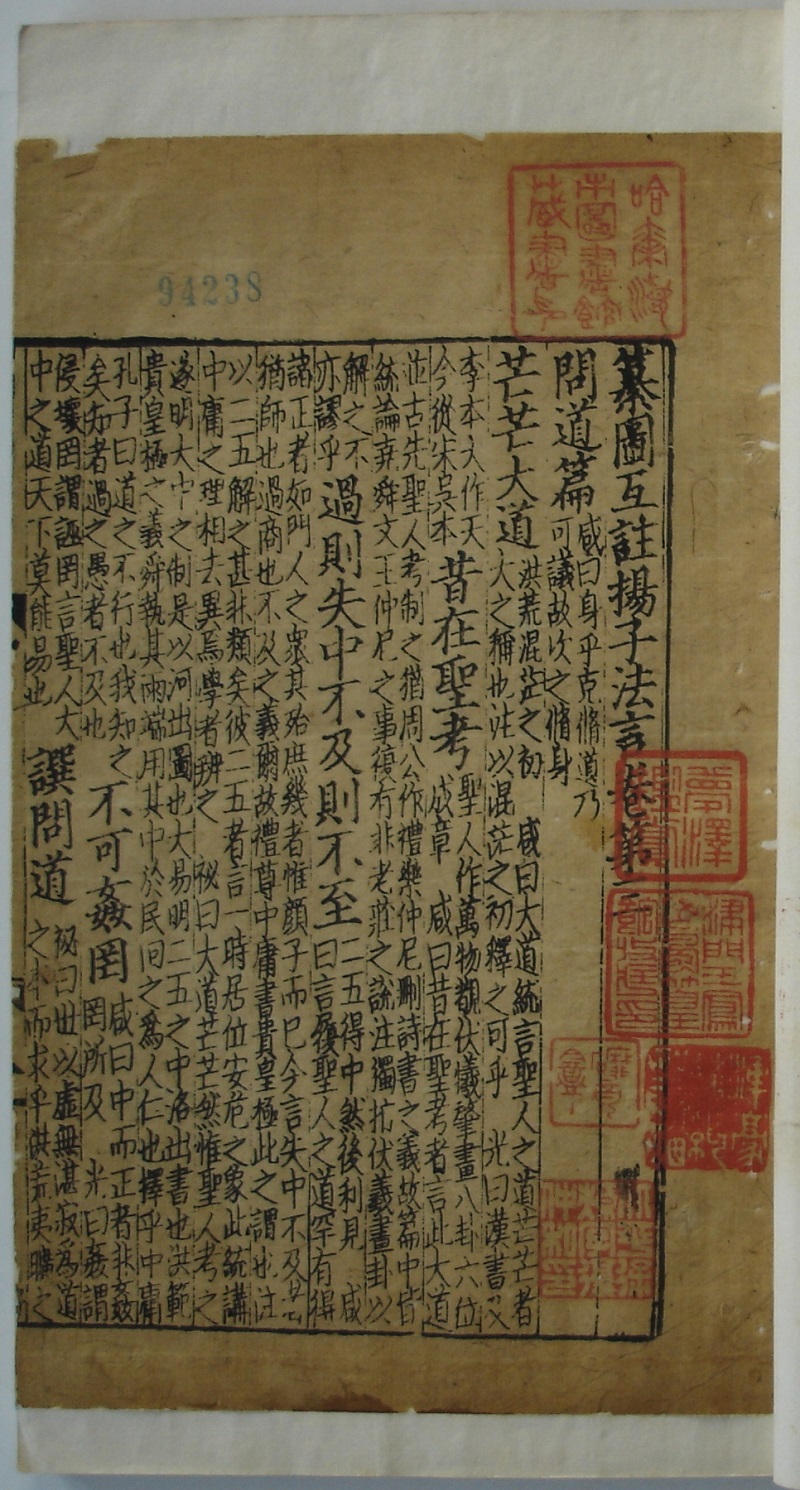 哈爾濱
市圖書館
藏書章
94238
纂圖互註揚子法言卷第三
問道篇
咸曰身乎克脩道乃
可議故次之脩身
芒芒大道
洪荒混茫之初 咸曰大道統言聖人之道芒芒者
大之稱也注以混茫之初釋之可乎 光曰漢書及
李本大作天
今從宋吳本
昔在聖考
聖人作萬物覩伏犧肇畫八卦六位
成章 咸曰昔在聖考者言此大道
並古先聖人考制之猶周公作禮樂仲尼刪詩書之義故篇中皆
統論堯舜文王仲尼之事復有非老莊之說注獨指伏羲畫卦以
解之不
亦謬乎
過則失中不及則不至
二五得中然後利見 咸
曰言履聖人之道罕有得
諸正者如門人之衆其殆庶幾者惟顏子而巳今言失中不及若
猶師也過商也不及之義爾故禮尊中庸書貴皇極此之謂也注
以二五解之甚非類矣彼二五者言一時居位安危之象此統講
中庸之理相去異焉學者辨之 祕曰大道芒芒然惟聖人考之
遂明大中之制是以河出圖也大易明二五之中洛出書也洪範
貴皇極之義舜執其兩端用其中於民回之爲人仁也擇乎中庸
孔子曰道之不行也我知之
矣知者過之愚者不及也
不可姦罔
咸曰中而正者非姦
罔所及 光曰姦謂
侵壞罔謂誣罔言聖人大
中之道天下莫能易也
譔問道
祕曰世以虛無湛寂爲道
之本而求乎洪荒夷曠之
夢澤